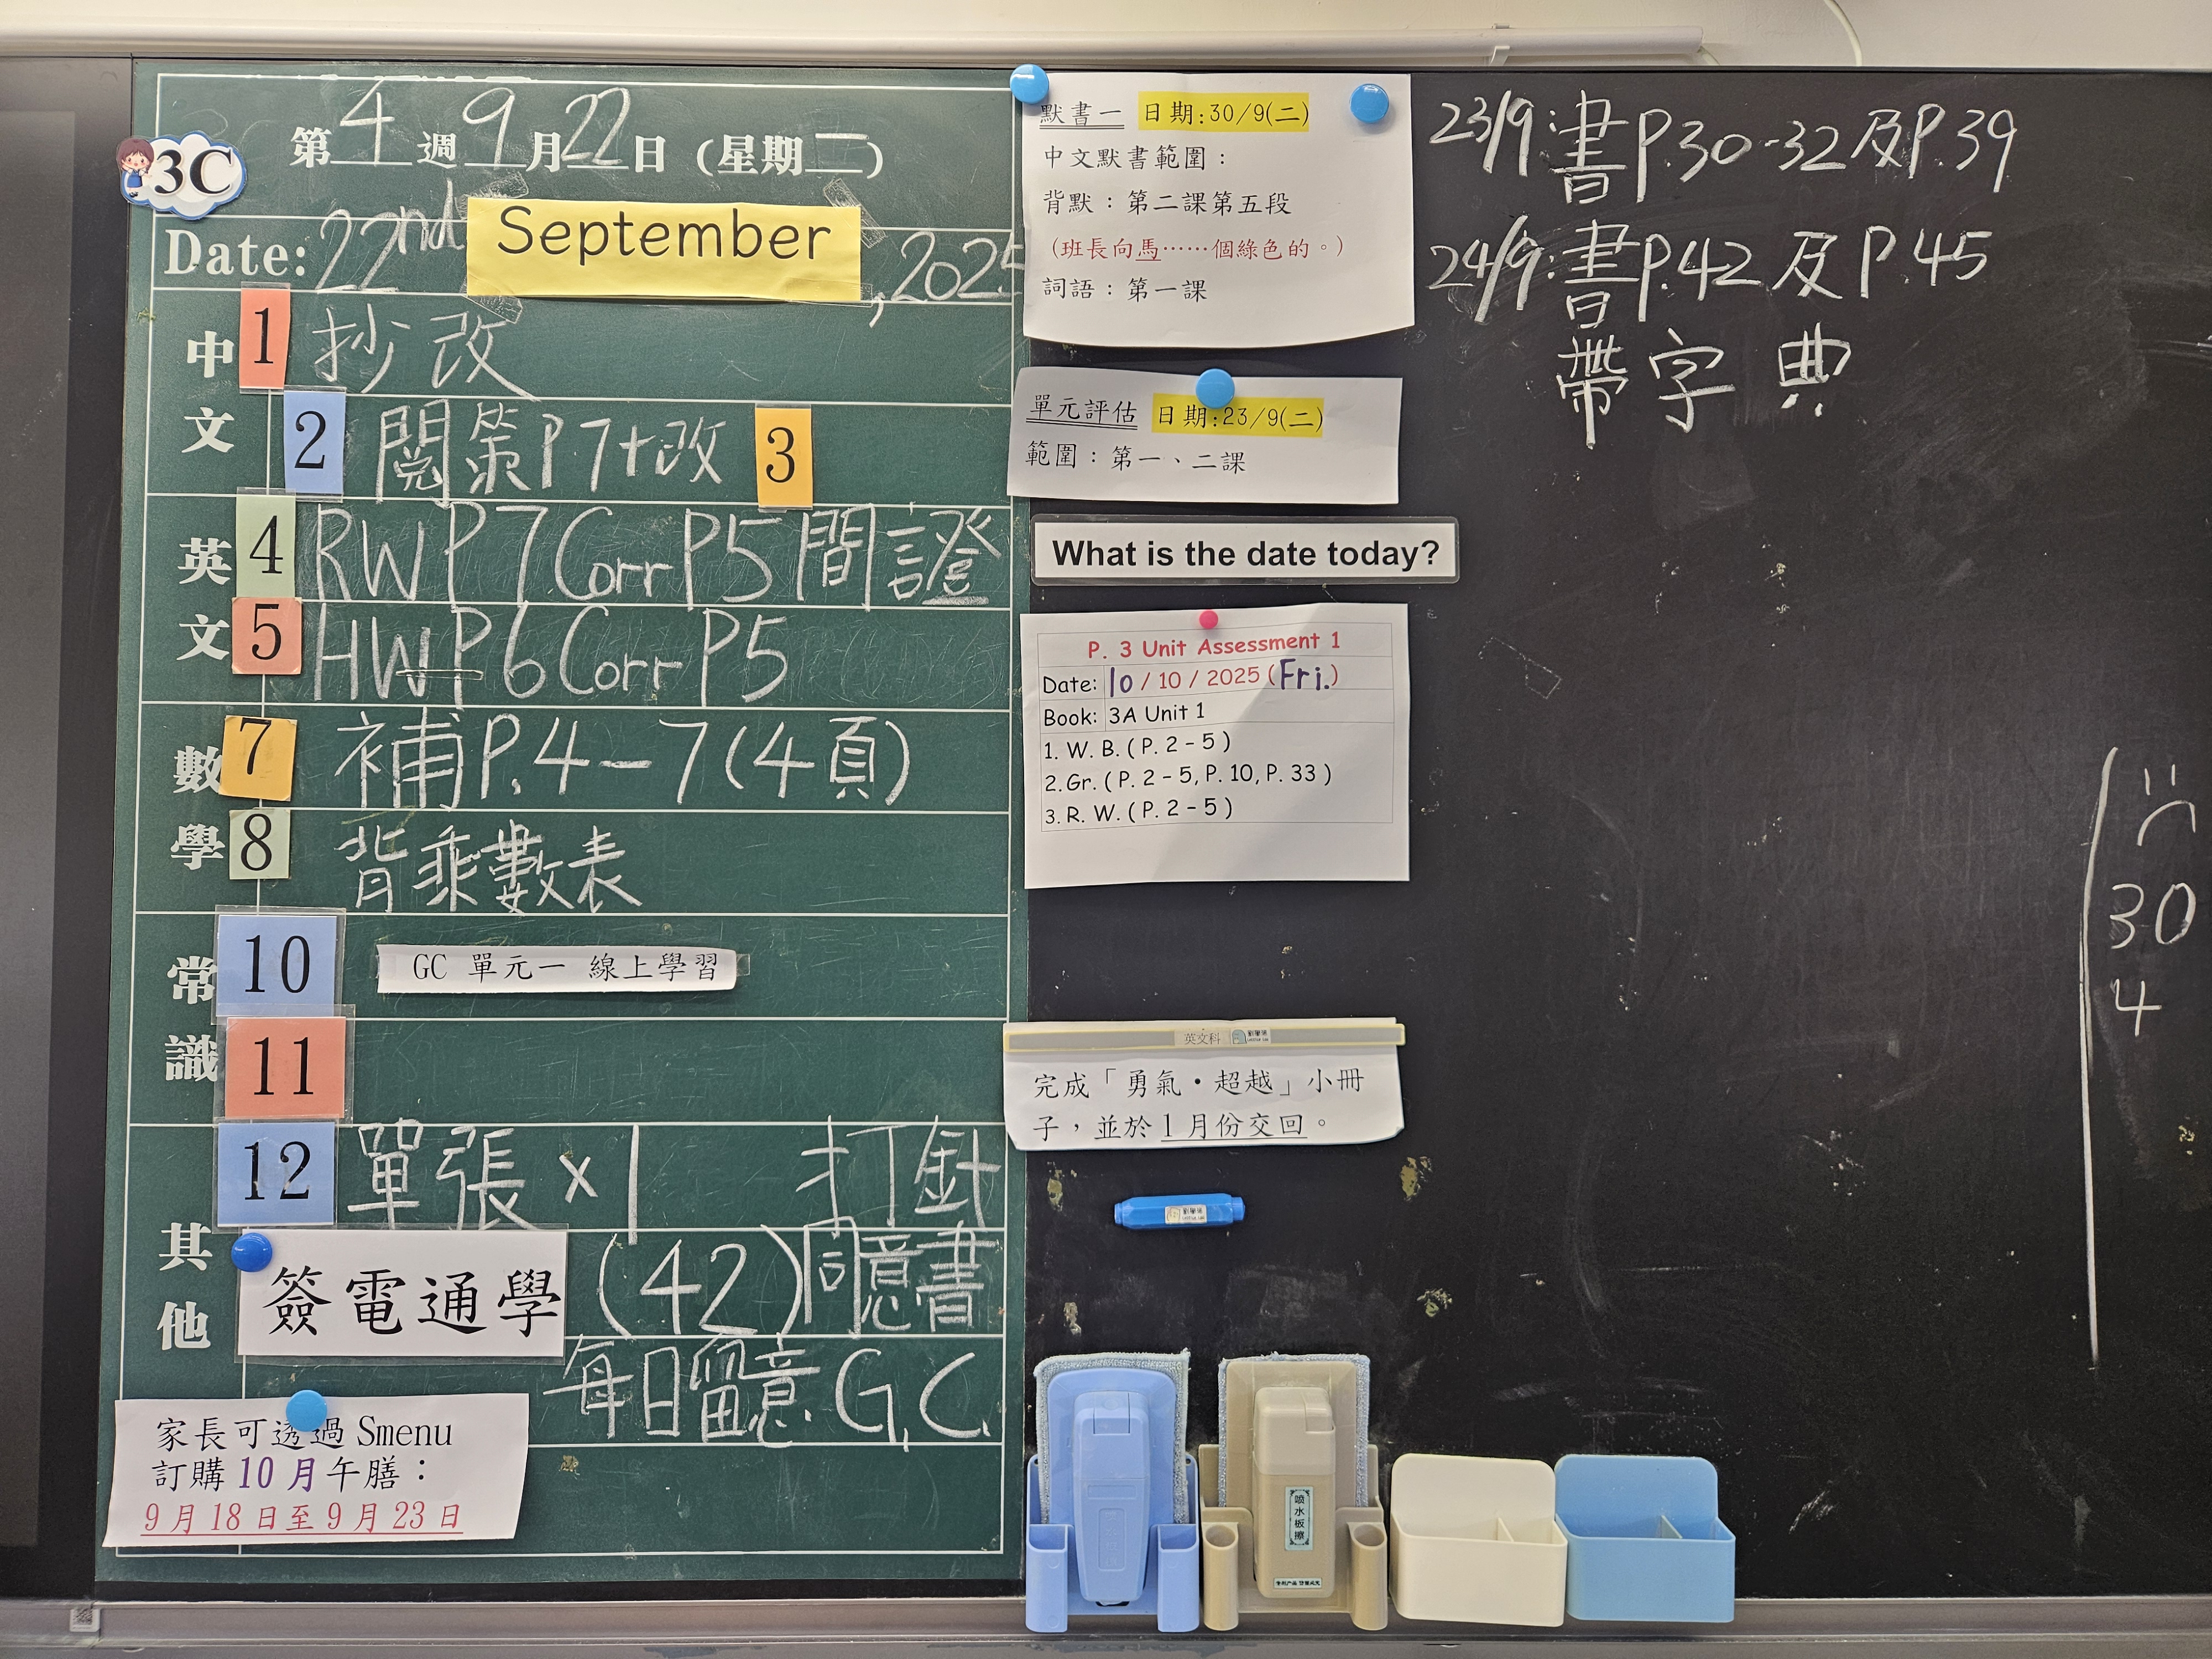 第4週9月22日(星期一)
3C
Date: 22nd September, 2025
中文
1 抄改
2 閱策P.7+改 3
英文
4 RW P7 Corr P5 簡證
5 HW P6 Corr P5
數學
7 補P.4-7(4頁)
8 背乘數表
常識
10 GC 單元一 線上學習
11
其他
12 單張x1 打針
簽電通學 (42) 同意書
每日留意G.C.
家長可透過 Smenu
訂購10月午膳：
9月18日至9月23日
默書一 日期:30/9(二)
中文默書範圍：
背默：第二課第五段
(班長向馬……個綠色的。)
詞語：第一課
單元評估 日期:23/9(二)
範圍：第一、二課
What is the date today?
P. 3 Unit Assessment 1
Date: 10 / 10 / 2025 (Fri.)
Book: 3A Unit 1
1. W. B. ( P. 2 - 5 )
2. Gr. ( P. 2 - 5, P. 10, P. 33 )
3. R. W. ( P. 2 - 5 )
英文科
完成「勇氣•超越」小冊
子，並於1月份交回。
23/9:書P.30-32及P.39
24/9:書P.42及P.45
帶字典
30
4
喷水板擦